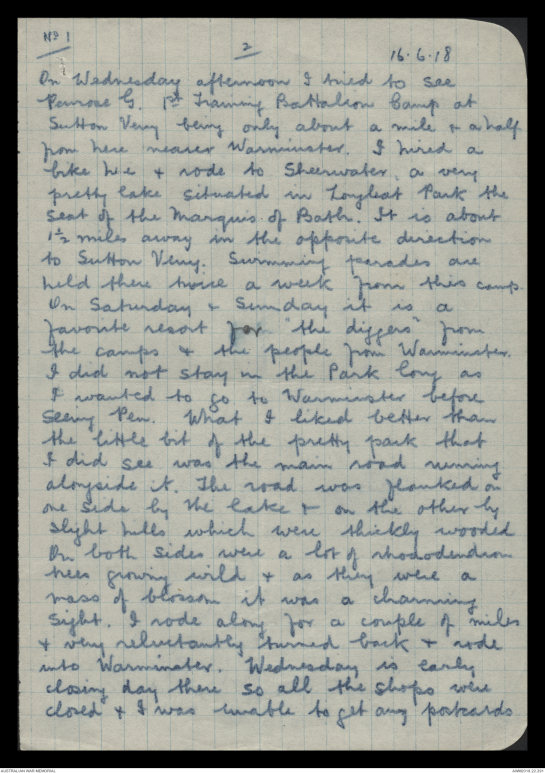 No 1
2
16.6.18
On Wednesday afternoon I tried to see
Penrose G. 1st Training Battalion Camp at
Sutton Veny being only about a mile & a half
from here nearer Warminster. I hired a
bike here & rode to Sheerwater, a very
pretty lake situated in Longleat Park the
seat of the Marquis of Bath. It is about
1½ miles away in the opposite direction
to Sutton Veny. Swimming parades are
held there twice a week from this camp.
On Saturday & Sunday it is a
favorite resort for "the diggers" from
the camps & the people from Warminster.
I did not stay in the Park long as
I wanted to go to Warminster before
seeing Pen. What I liked better than
the little bit of the pretty park that
I did see was the main road running
alongside it. The road was flanked on
one side by the lake & on the other by
slight hills which were thickly wooded
On both sides were a lot of rhododendron
trees growing wild & as they were a
mass of blossom it was a charming
sight. I rode along for a couple of miles
& very reluctantly turned back & rode
into Warminster. Wednesday is early
closing day there so all the shops were
closed & I was unable to get any postcards
AUSTRALIAN WAR MEMORIAL